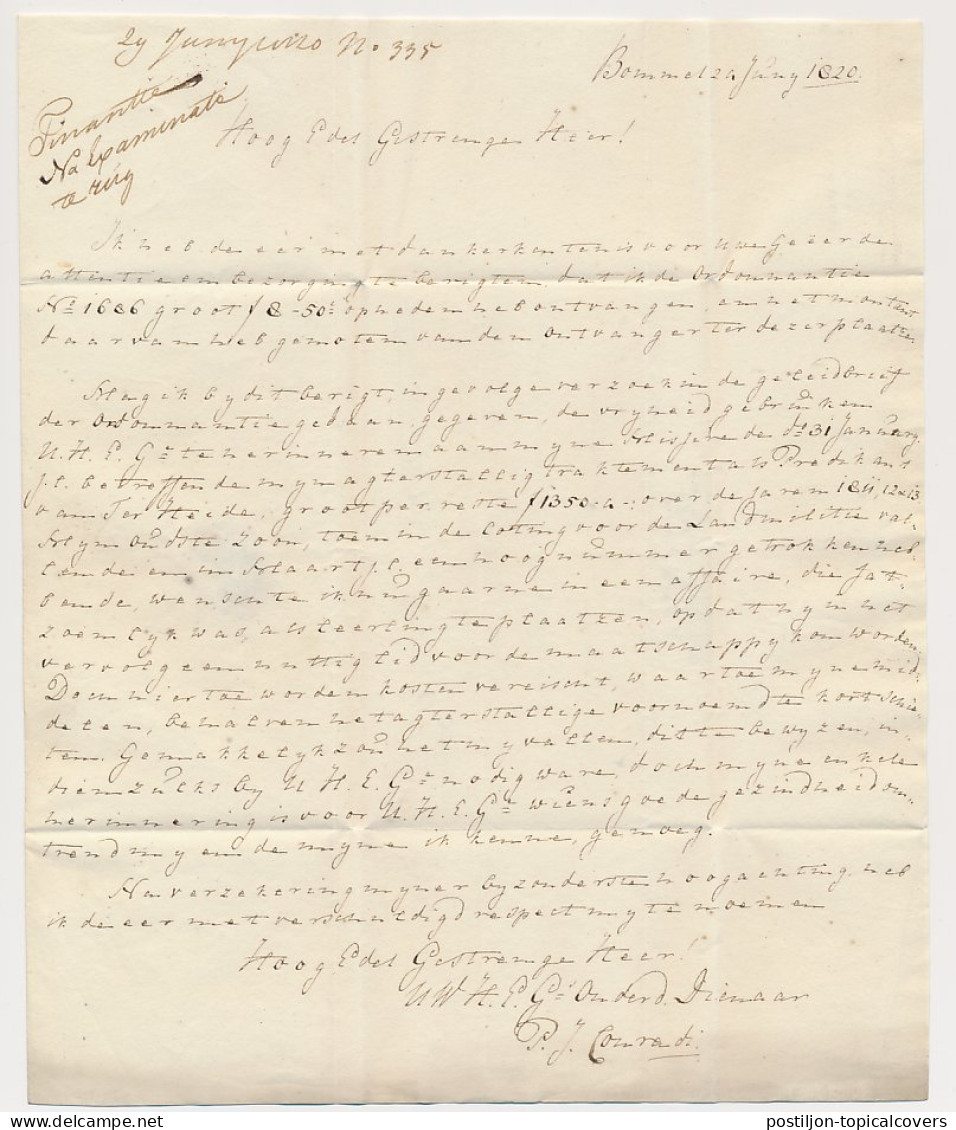 29 Juny 1820 No 335
Bommel 20 Juny 1820.
Finantie
Na Examinatie
te rug
Hoog Edel Gestrenge Heer!
Ik heb de eer met dankerkentenis voor Uwe Geëerde
attentie en bezorging te berigten, dat ik de Ordonnantie
No 1686 groot f 8-50 op heden heb ontvangen, en het montant
daarvan heb genoten van den Ontvanger ter dezer plaatze.
Mag ik by dit berigt, ingevolge verzoek in de geleidbrief
der Ordonnantie gedaan, gegeven, de vryheid gebruiken
U. H. E. Gr. te herinneren aan myne Missive de do 31 January
j.l. betreffende myn agterstallig traktement als Predikant
van Ter Heide, groot per reste f 1350-"-; over de jaren 1811, 12 & 13.
Myn oudste Zoon, toen in de Loting voor de Landmilitie val-
lende en in Maart j.l. een hoog nummer getrokken heb-
bende, wenschte ik nu gaarne in een affaire, die fat-
zoenlyk was, als leerling te plaatzen, opdat hy in het
vervolg een nuttig lid voor de maatschappy kon worden,
Doch hier toe worden kosten vereischt, waartoe myne mid-
delen, behalven het agterstallige voornoemd te kort schie-
ten. Gemakkelyk zou het my vallen, dit te bewyzen, in-
dien zulks by U. H. E. Gr. nodig ware, doch myne enkele
herinnering is voor U. H. E. Gr. wiens goede gezindheid om-
trend my en de myne ik kenne, genoeg.
Na verzekering myner byzonderste hoogachting, heb
ik de eer met verschuldigd respect my te noemen
Hoog Edel Gestrenge Heer!
UW H. E. Gr. Onderd. Dienaar
P. J. Conradi.
postiljon-topicalcovers